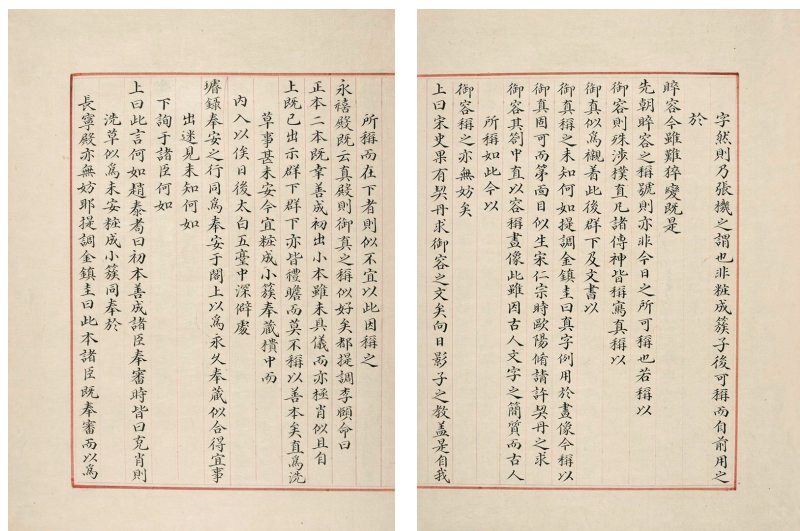 字然則乃張機之謂也非粧成簇子後可稱而自前用之
於
睟容今雖難猝變既是
先朝睟容之稱號則亦非今日之所可稱也若稱以
御容則殊涉樸直凡諸傳神皆稱寫眞稱以
御眞似爲襯着此後群下及文書以
御眞稱之未知何如提調金鎭圭曰眞字例用於畫像今稱以
御眞固可而第面目似生宋仁宗時歐陽脩請許契丹之求
御容其劄中直以容稱畫像此雖因古人文字之簡質而古人
所稱如此今以
御容稱之亦無妨矣
上曰宋史果有契丹求御容之文矣向日影子之敎盖是自我
所稱而在下者則似不宜以此因稱之
永禧殿既云眞殿則御眞之稱似好矣都提調李頤命曰
正本二本既幸善成初出小本雖未具儀而亦極肖似且自
上既已出示群下群下亦皆禮瞻而莫不稱以善本矣直爲洗
草事甚未安今宜粧成小簇奉藏樻中而
內入以俟日後太白五臺中深僻處
璿錄奉安之行同爲奉安于閣上以爲永久奉藏似合得宜事
出迷見未知何如
下詢于諸臣何如
上曰此言何如趙泰耉曰初本善成諸臣奉審時皆曰克肖則
洗草似爲未安粧成小簇同奉於
長寧殿亦無妨耶提調金鎭圭曰此本諸臣既奉審而以爲